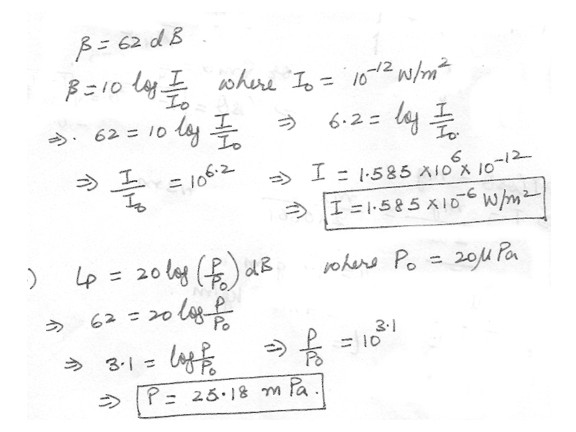 β = 62 dB
β = 10 log I/I₀ where I₀ = 10⁻¹² W/m²
⇒. 62 = 10 log I/I₀ ⇒ 6.2 = log I/I₀.
⇒ I/I₀ = 10⁶·² ⇒ I = 1.585 × 10⁶ × 10⁻¹²
⇒ I = 1.585 × 10⁻⁶ W/m²
) Lp = 20 log (P/P₀) dB where P₀ = 20 μ Pa
⇒ 62 = 20 log P/P₀
⇒ 3.1 = log P/P₀ ⇒ P/P₀ = 10³·¹
⇒ P = 25.18 m Pa.